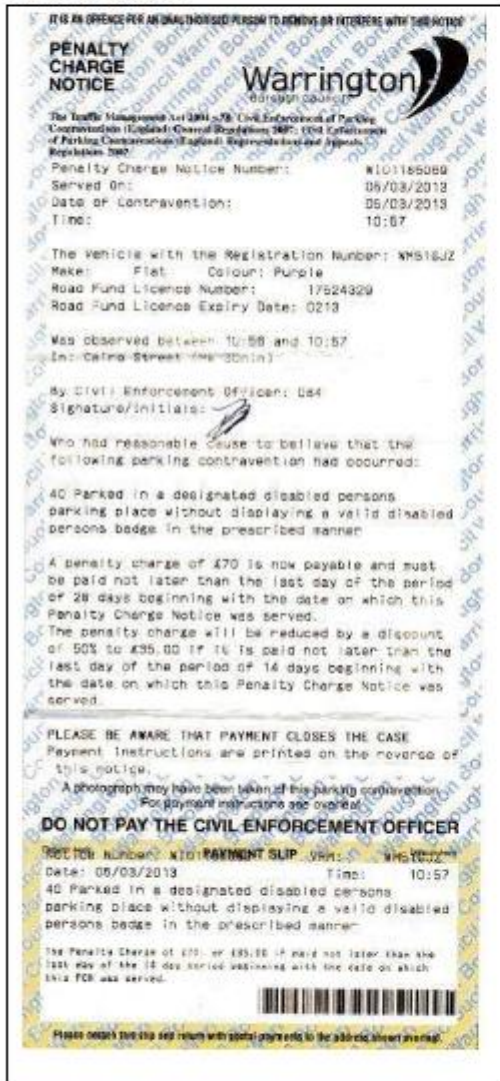 IT IS AN OFFENCE FOR AN UNAUTHORISED PERSON TO REMOVE OR INTERFERE WITH THIS NOTICE
PENALTY
CHARGE
NOTICE
Warrington
Borough Council
The Traffic Management Act 2004 s.78: Civil Enforcement of Parking
Contraventions (England) General Regulations 2007: Civil Enforcement
of Parking Contraventions (England) Representations and Appeals
Regulations 2007
Penalty Charge Notice Number:
Served On: 05/03/2013
Date of Contravention: 05/03/2013
Time: 10:57
The Vehicle with the Registration Number:
Make: Fiat Colour: Purple
Road Fund Licence Number: 17524329
Road Fund Licence Expiry Date: 0213
Was observed between 10:56 and 10:57
In: Cairo Street
By Civil Enforcement Officer:
Signature/Initials:
Who had reasonable cause to believe that the
following parking contravention had occurred:
40 Parked in a designated disabled persons
parking place without displaying a valid disabled
persons badge in the prescribed manner
A penalty charge of £70 is now payable and must
be paid not later than the last day of the period
of 28 days beginning with the date on which this
Penalty Charge Notice was served.
The penalty charge will be reduced by a discount
of 50% to £35.00 if it is paid not later than the
last day of the period of 14 days beginning with
the date on which this Penalty Charge Notice was
served.
PLEASE BE AWARE THAT PAYMENT CLOSES THE CASE
Payment instructions are printed on the reverse of
this notice.
A photograph may have been taken of this parking contravention
For payment instructions see overleaf
DO NOT PAY THE CIVIL ENFORCEMENT OFFICER
Notice Number: PAYMENT SLIP VRM:
Date: 05/03/2013 Time: 10:57
40 Parked in a designated disabled persons
parking place without displaying a valid disabled
persons badge in the prescribed manner
The Penalty Charge of £70. or £35.00 if paid not later than the
last day of the 14 day period beginning with the date on which
this PCN was served.
Please detach this slip and return with postal payments to the address shown overleaf.